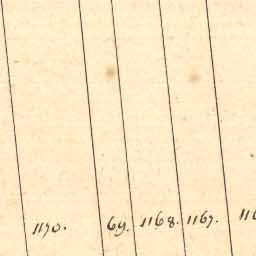 1170. 69. 1168. 1167. 116